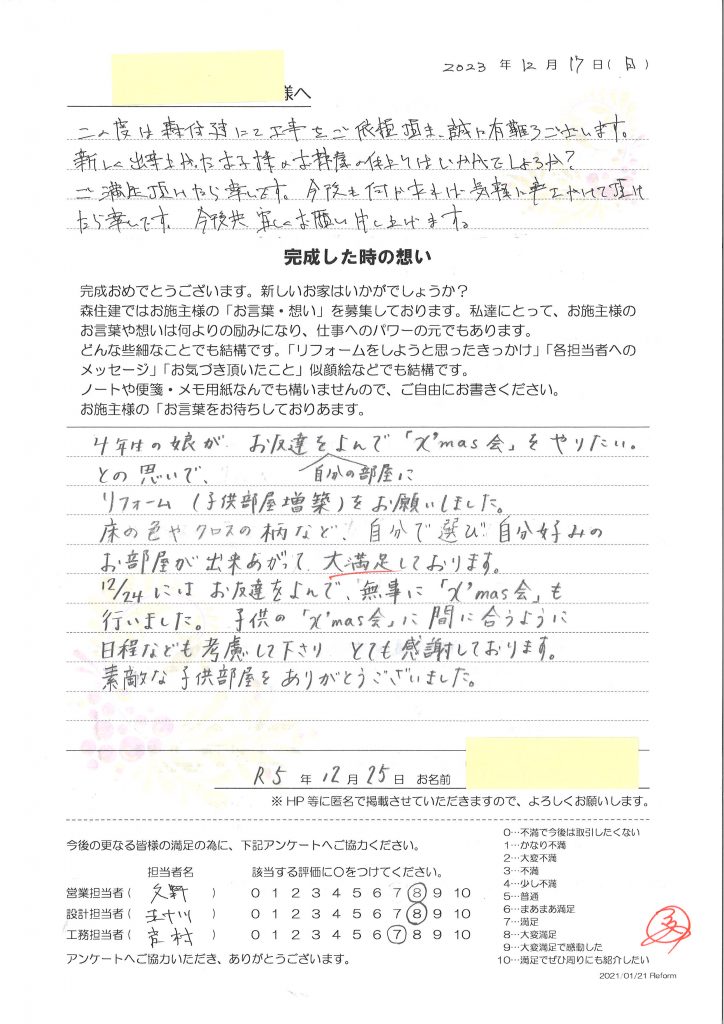 2023 年 12 月 17 日(日)
様へ
この度は森住建にて工事をご依頼頂き、誠に有難うございます。
新しく出来上がったお子様のお部屋の仕上りはいかがでしょうか?
ご満足頂けたら幸いです。今後も何かあれば気軽に声をかけて頂け
たら幸いです。今後共宜しくお願い申し上げます。
完成した時の想い
完成おめでとうございます。新しいお家はいかがでしょうか?
森住建ではお施主様の「お言葉・想い」を募集しております。私達にとって、お施主様の
お言葉や想いは何よりの励みになり、仕事へのパワーの元でもあります。
どんな些細なことでも結構です。「リフォームをしようと思ったきっかけ」「各担当者への
メッセージ」「お気づき頂いたこと」似顔絵などでも結構です。
ノートや便箋・メモ用紙なんでも構いませんので、ご自由にお書きください。
お施主様の「お言葉をお待ちしておりあます。
4年生の娘が、お友達をよんで「X'mas会」をやりたい。
との思いで、 自分の部屋に
リフォーム (子供部屋増築)をお願いしました。
床の色やクロスの柄など、自分で選び自分好みの
お部屋が出来あがって、大満足しております。
12/24には お友達をよんで、無事に「X'mas会」も
行いました。 子供の「X'mas会」に間に合うように
日程なども考慮して下さり とても感謝しております。
素敵な子供部屋をありがとうございました。
R5 年 12 月 25 日 お名前
※HP 等に匿名で掲載させていただきますので、よろしくお願いします。
今後の更なる皆様の満足の為に、下記アンケートへご協力ください。
担当者名 該当する評価に○をつけてください。
営業担当者( ) 0 1 2 3 4 5 6 7 8 9 10
設計担当者(五十川) 0 1 2 3 4 5 6 7 8 9 10
工務担当者( 村 ) 0 1 2 3 4 5 6 7 8 9 10
アンケートへご協力いただき、ありがとうございます。
0…不満で今後は取引したくない
1…かなり不満
2…大変不満
3…不満
4…少し不満
5…普通
6…まあまあ満足
7…満足
8…大変満足
9…大変満足で感動した
10…満足でぜひ周りにも紹介したい
2021/01/21 Reform